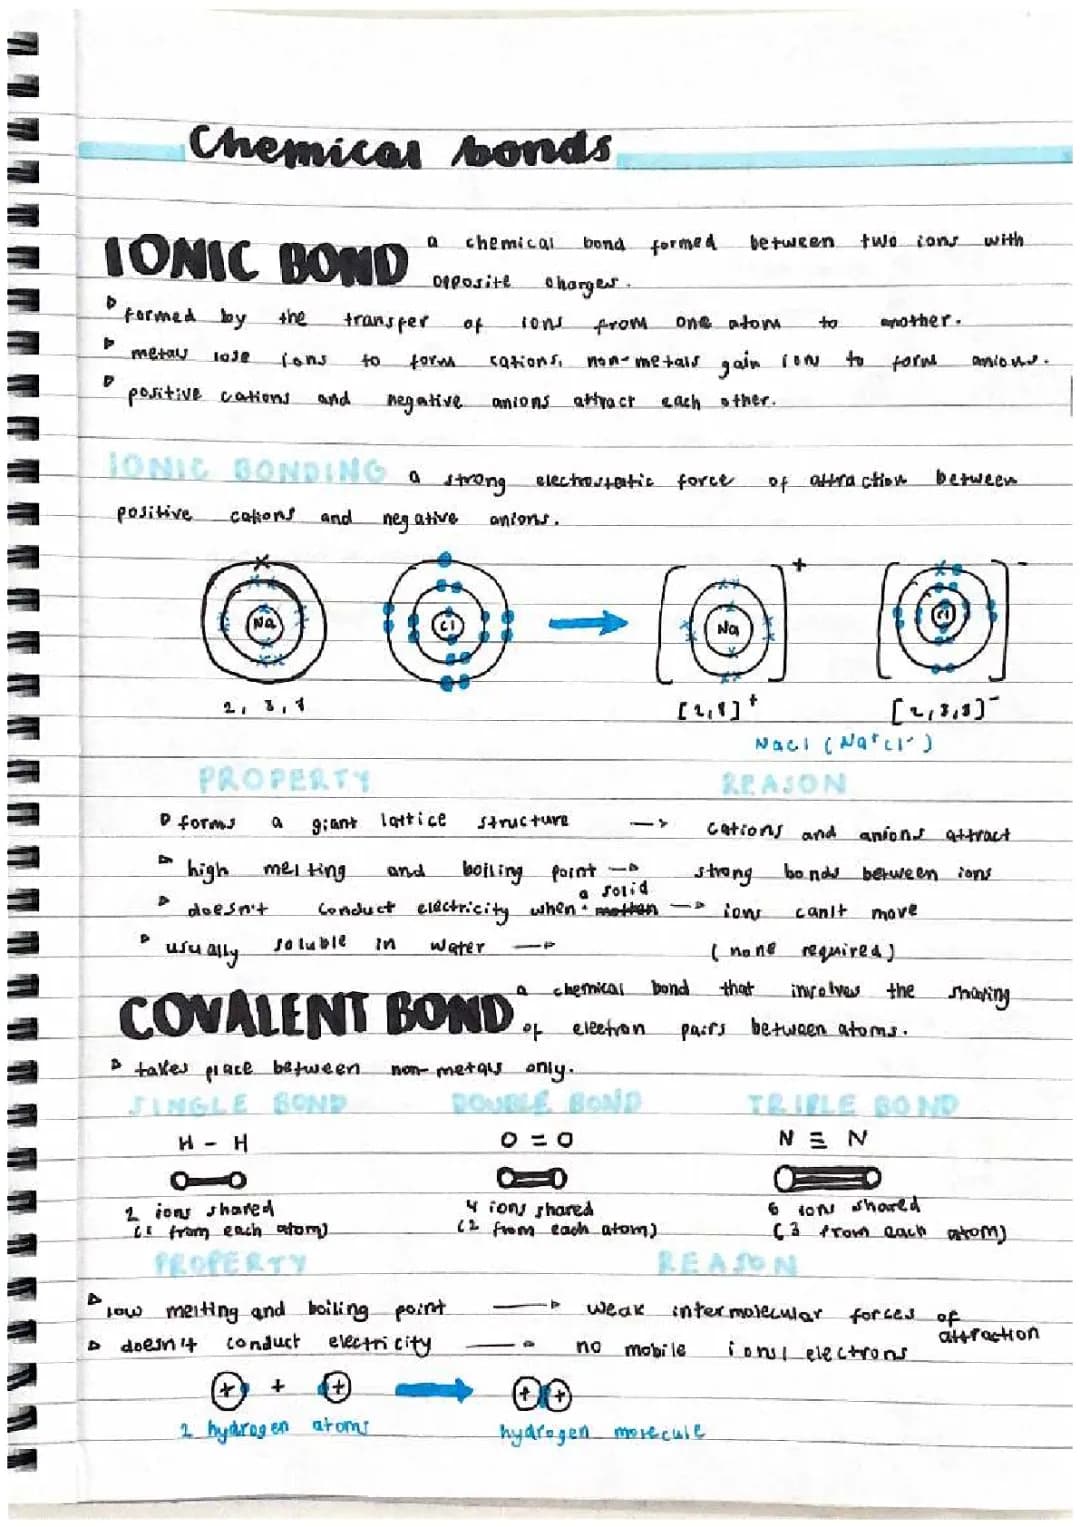 Chemical bonds
IONIC BOND a chemical bond formed between two ions with
opposite charges.
formed by the transfer of ions from one atom to another.
metals lose ions to form cations, non-metals gain ions to form anions.
positive cations and negative anions attract each other.
IONIC BONDING a strong electrostatic force of attraction between
positive cations and negative anions.
Na Cl Na + Cl -
2, 8, 1 [2,8]+ [2,8,8]-
NaCl (Na+Cl-)
PROPERTY REASON
forms a giant lattice structure → cations and anions attract
high melting and boiling point → strong bonds between ions
a solid
doesn't conduct electricity when molten → ions can't move
usually soluble in water → (none required)
COVALENT BOND a chemical bond that involves the sharing
of electron pairs between atoms.
takes place between non-metals only.
SINGLE BOND DOUBLE BOND TRIPLE BOND
H - H O = O N ≡ N
2 ions shared 4 ions shared 6 ions shared
(1 from each atom) (2 from each atom) (3 from each atom)
PROPERTY REASON
low melting and boiling point → weak intermolecular forces of
attraction
doesn't conduct electricity → no mobile ions/electrons
+ + + → + +
2 hydrogen atoms hydrogen molecule